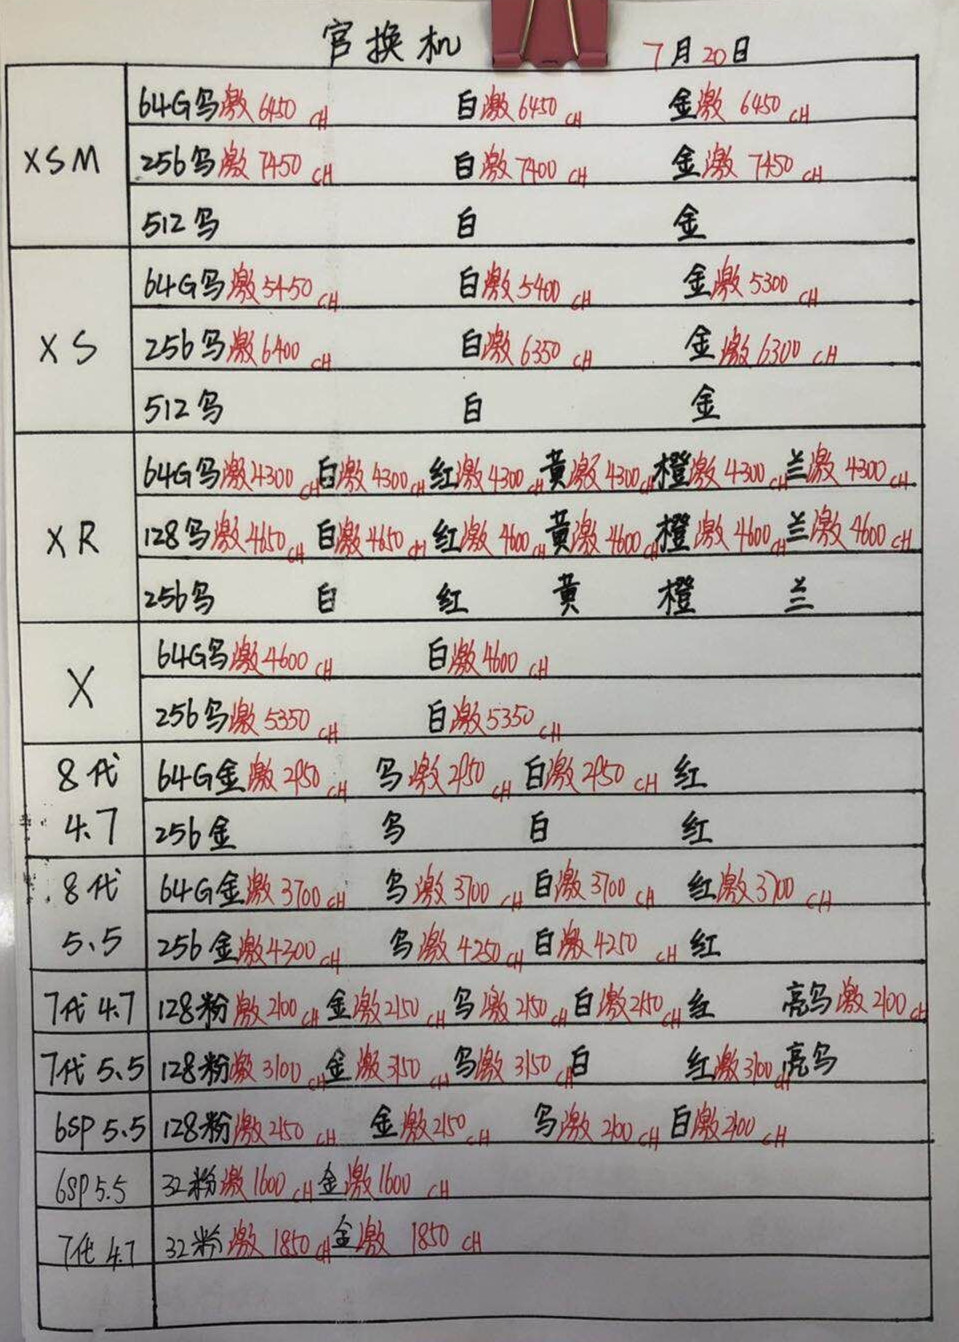 官换机 7月20日
XSM
64G乌激6450CH 白激6450CH 金激6450CH
256乌激7450CH 白激7400CH 金激7450CH
512乌 白 金
XS
64G乌激5450CH 白激5400CH 金激5300CH
256乌激6400CH 白激6350CH 金激6300CH
512乌 白 金
XR
64G乌激4300CH 白激4300CH 红激4300CH 黄激4300CH 橙激4300CH 兰激4300CH
128乌激4650CH 白激4650CH 红激4600CH 黄激4600CH 橙激4600CH 兰激4600CH
256乌 白 红 黄 橙 兰
X
64G乌激4600CH 白激4600CH
256乌激5350CH 白激5350CH
8代
4.7
64G金激2950CH 乌激2950CH 白激2950CH 红
256金 乌 白 红
8代
5、5
64G金激3700CH 乌激3700CH 白激3700CH 红激3700CH
256金激4300CH 乌激4250CH 白激4250CH 红
7代4.7 128粉激2100CH 金激2150CH 乌激2150CH 白激2150CH 红 亮乌激2100CH
7代5、5 128粉激3100CH 金激3150CH 乌激3150CH 白 红激3100CH 亮乌
6SP5.5 128粉激2150CH 金激2150CH 乌激2100CH 白激2100CH
6SP5.5 32粉激1600CH 金激1600CH
7代4.7 32粉激1850CH 金激1850CH